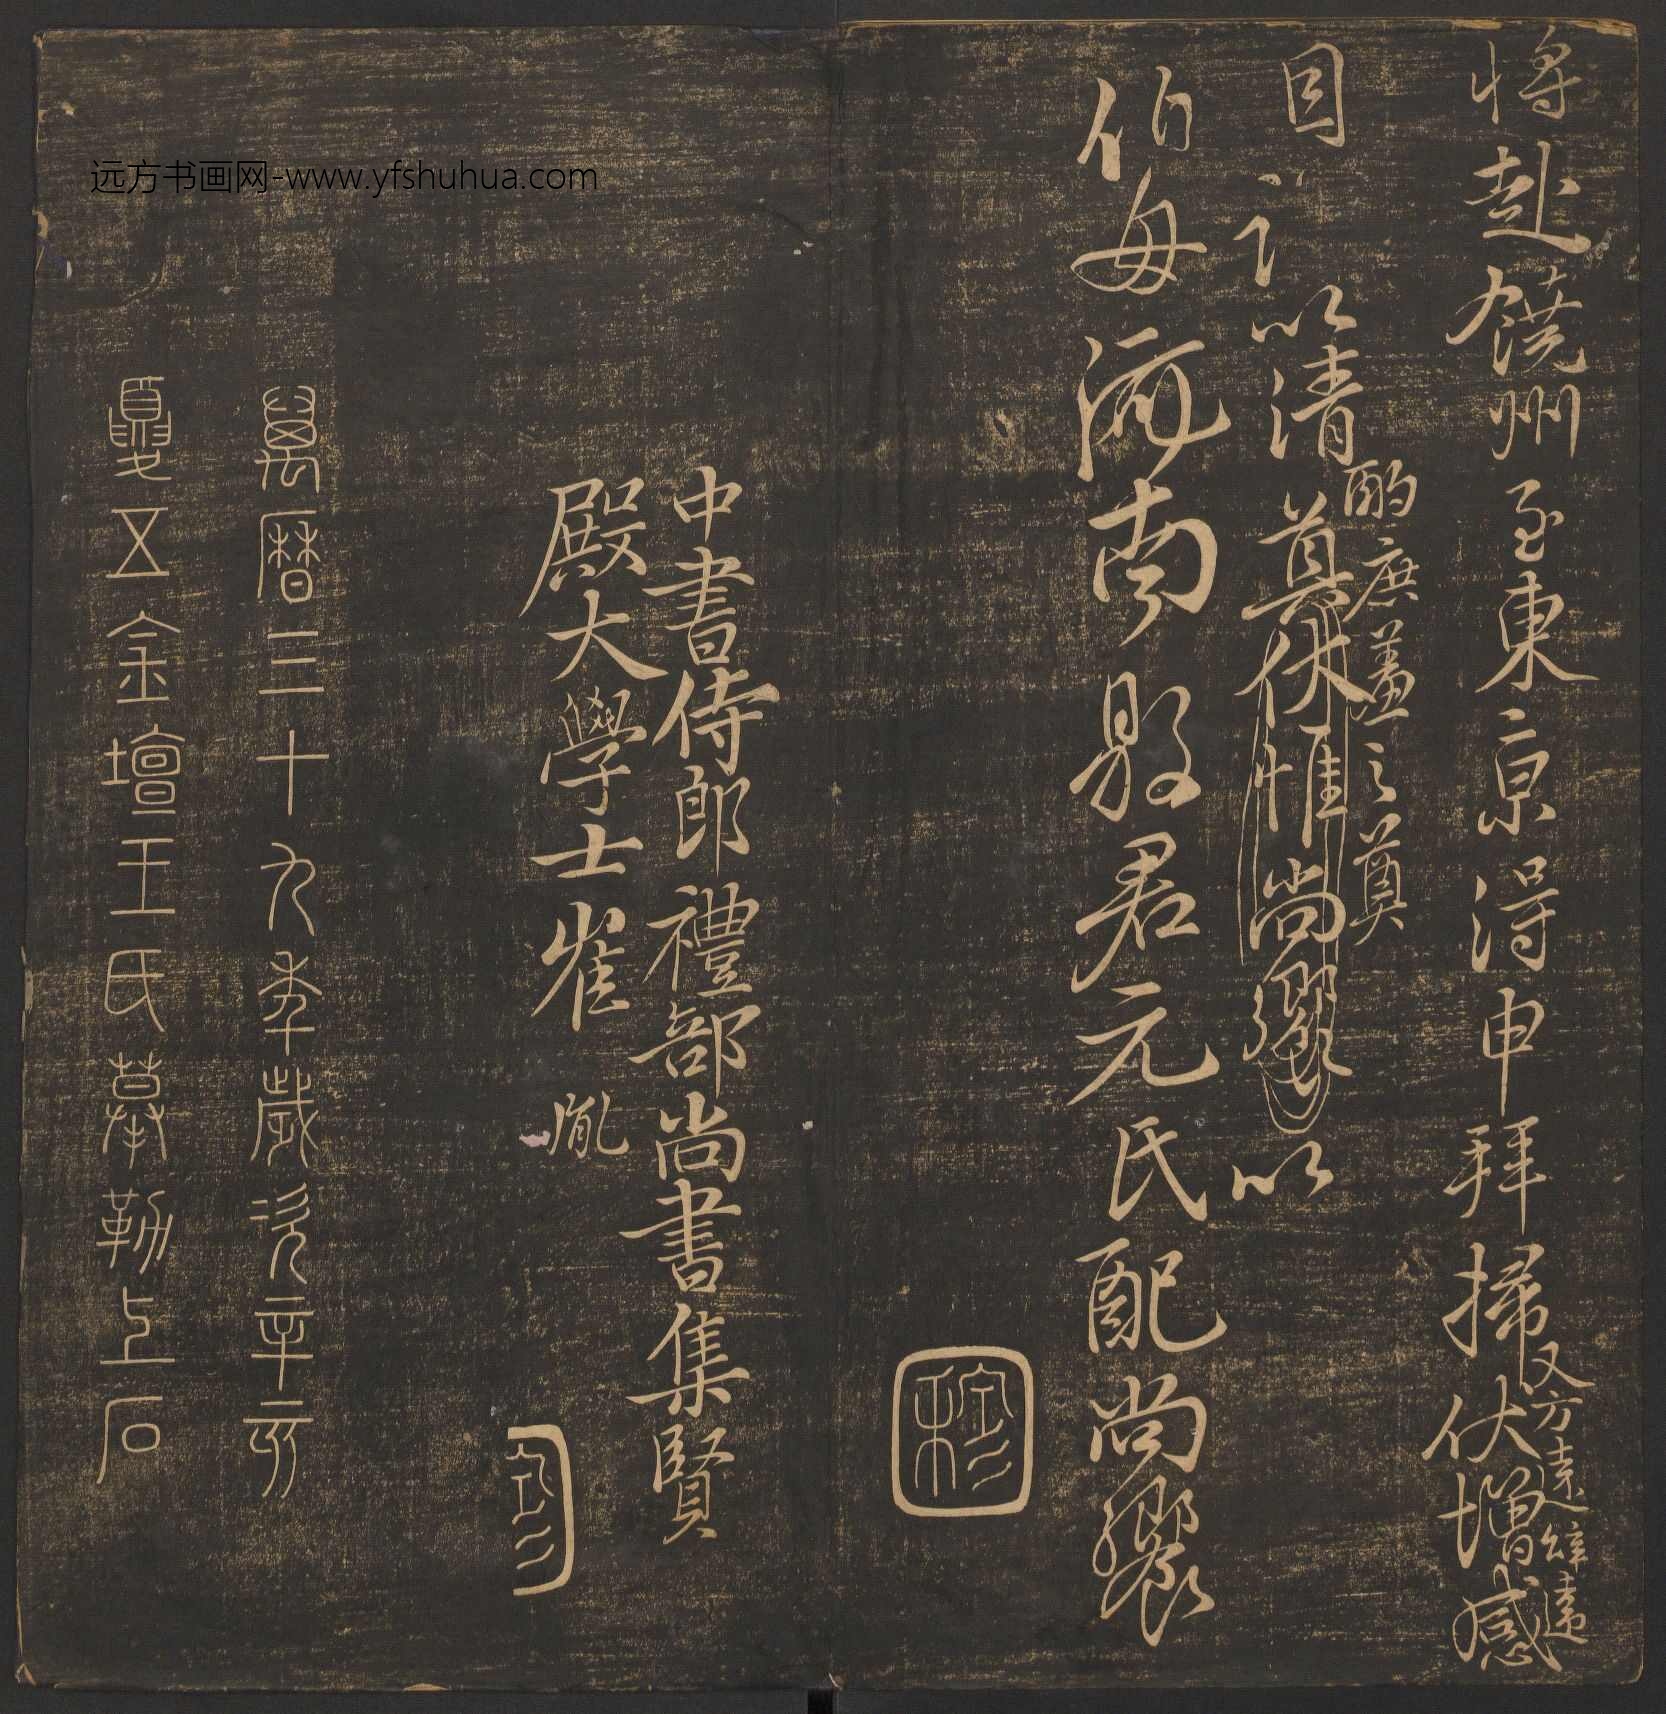 將赴饒州至東京得申拜掃又方遠辭違伏增感
謹以清酌庶羞之奠伏惟尚饗以
伯母河南縣君元氏配尚饗
中書侍郎禮部尚書集賢
殿大學士崔胤
萬曆三十九年歲次辛亥
夏五金壇王氏摹勒上石
远方书画网-www.yfshuhua.com